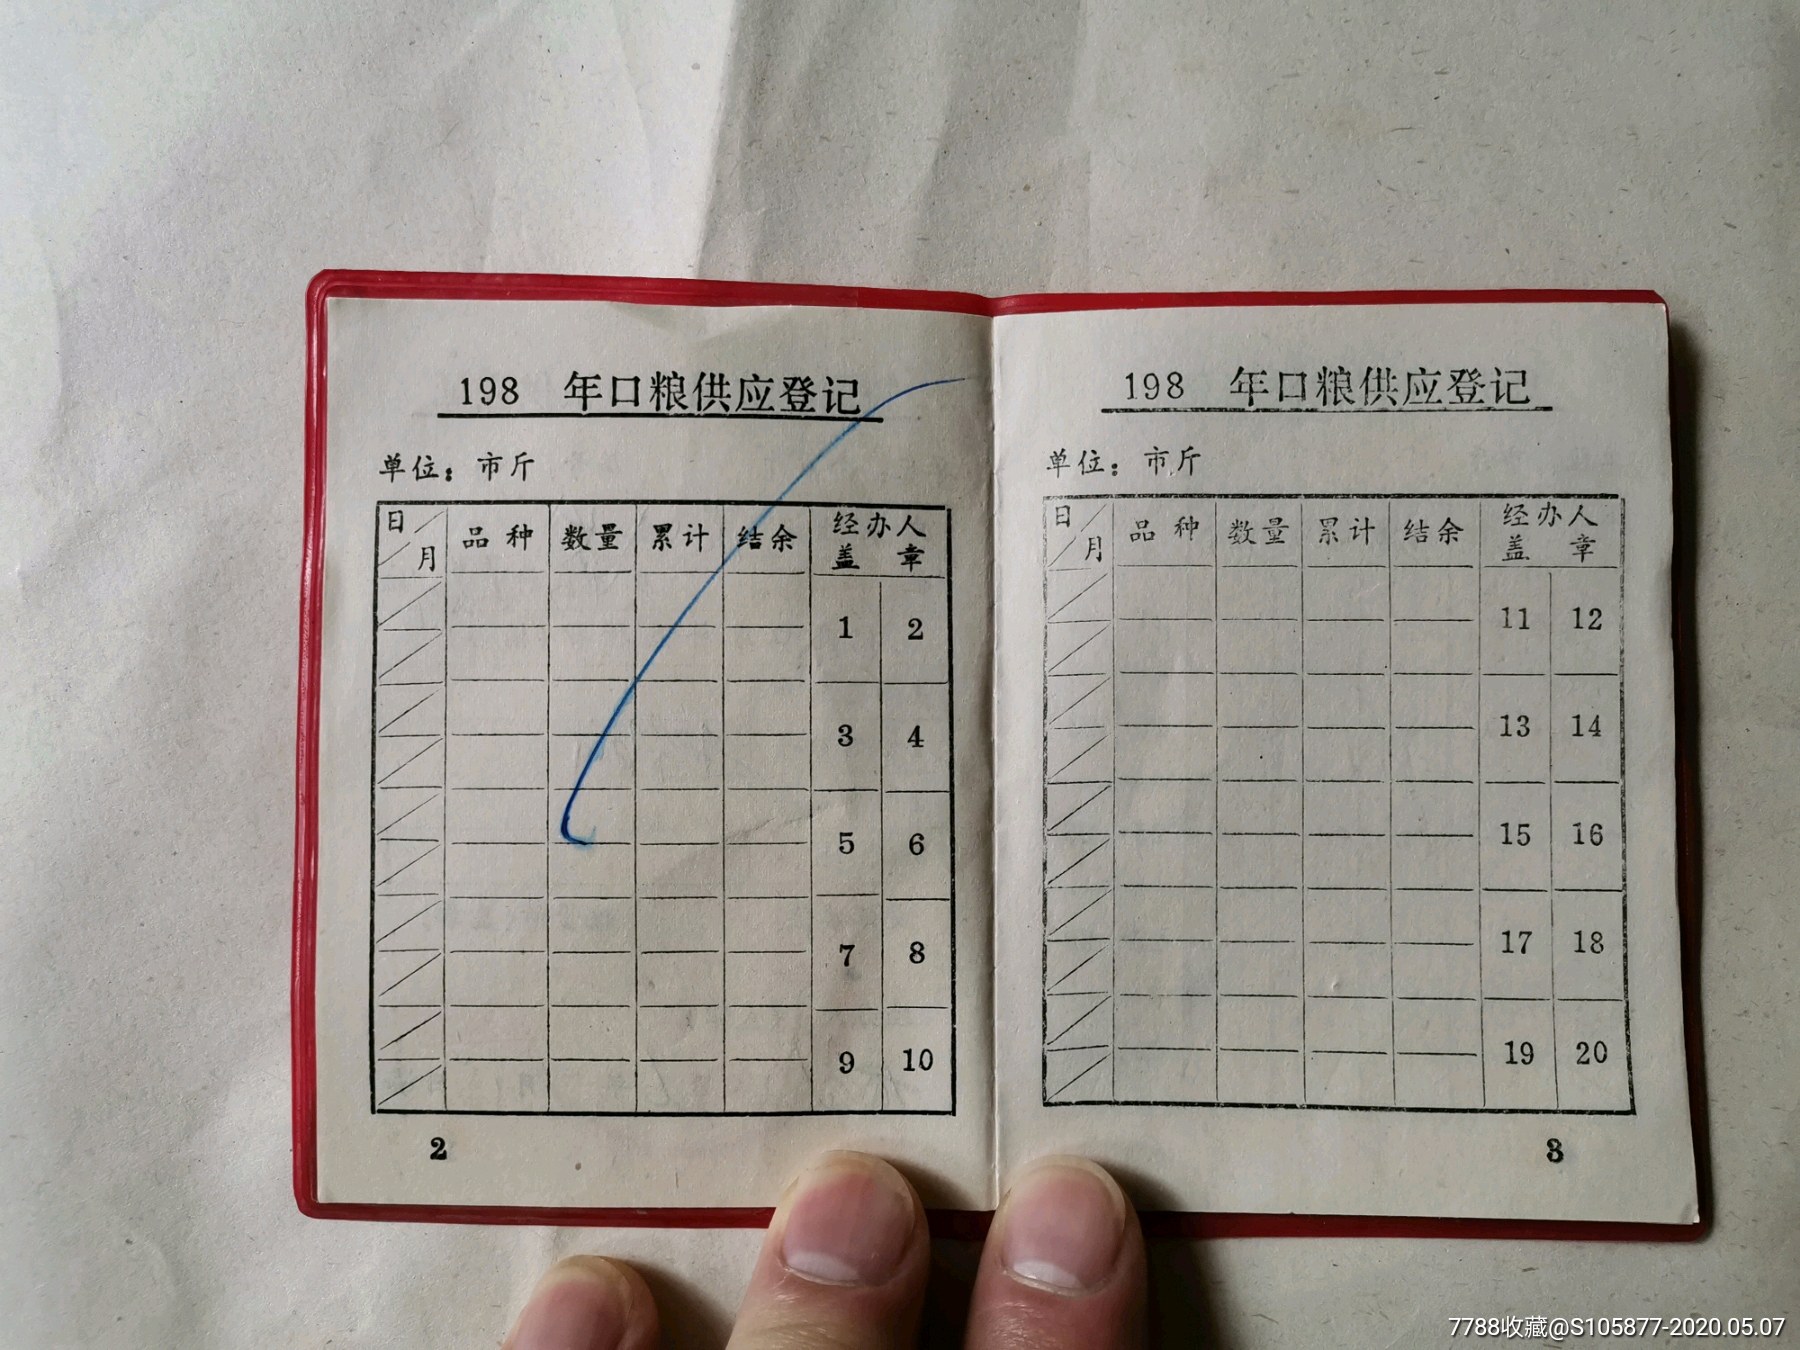 198 年口粮供应登记
单位：市斤
日 月 品种 数量 累计 结余 经办人盖章
1 2
3 4
5 6
7 8
9 10
2
198 年口粮供应登记
单位：市斤
日 月 品种 数量 累计 结余 经办人盖章
11 12
13 14
15 16
17 18
19 20
3
7788收藏@S105877-2020.05.07